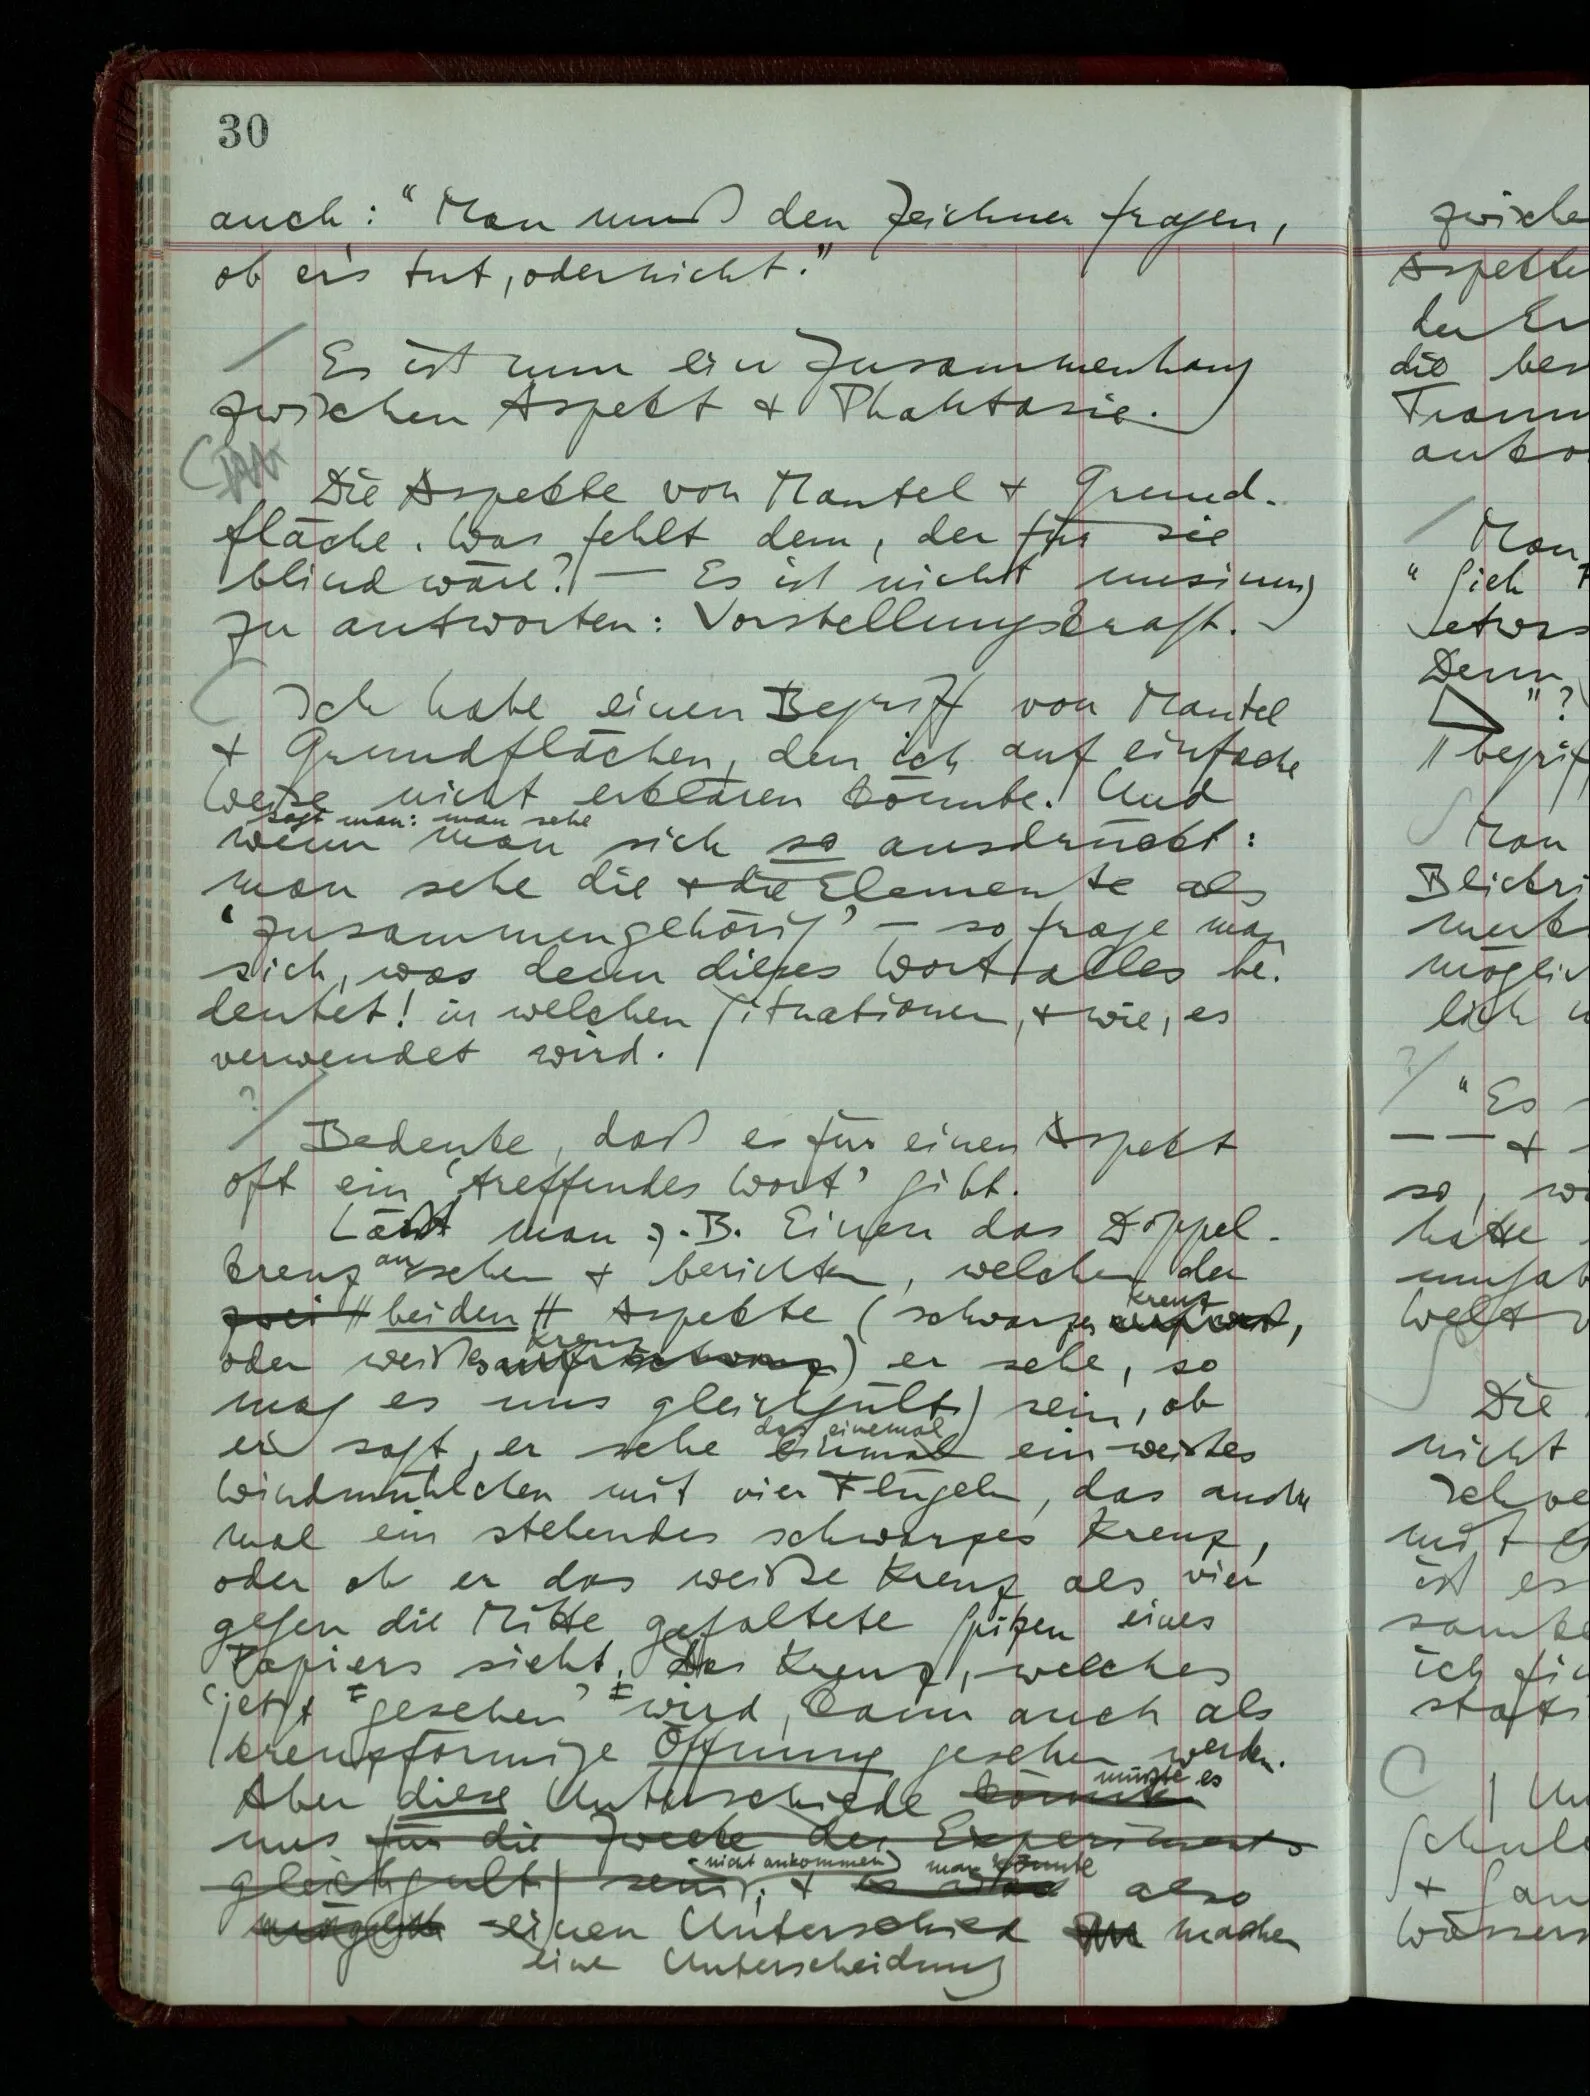 30
auch: "Man muß den Zeichner fragen,
ob er's tut, oder nicht."
Es ist nun ein Zusammenhang
zwischen Aspekt & Phantasie.
Die Aspekte von Mantel & Grund-
fläche. Was fehlt dem, der für sie
blind wäre? — Es ist nicht unsinnig
zu antworten: Vorstellungskraft.
Ich habe einen Begriff von Mantel
& Grundflächen, den ich auf einfache
Weise nicht erklären könnte. Und
sagt man: man sehe
wenn man sich so ausdrückt:
man sehe die & die Elemente als
'zusammengehörig' — so frage man
sich, was denn dieses Wort alles be-
deutet! in welchen Situationen, & wie, es
verwendet wird.
?
Bedenke, daß es für einen Aspekt
oft ein 'treffendes Wort' gibt.
Läßt man z.B. Einen das Doppel-
kreuz ansehen & berichten, welchen der
zwei // beiden // Aspekte (schwarzes Kreuz,
oder weißes Kreuz) er sehe, so
mag es uns gleichgültig sein, ob
das einemal
er sagt, er sehe einmal ein weißes
Windmühlchen mit vier Flügeln, das andre
mal ein stehendes schwarzes Kreuz,
oder ob er das weiße Kreuz als vier
gegen die Mitte gefaltete Spitzen eines
Papiers sieht. Das Kreuz, welches
'jetzt gesehen' wird, kann auch als
kreuzförmige Öffnung gesehen werden.
müßte es
Aber diese Unterschiede könnten
uns für die Zwecke des Experiments
nicht ankommen man könnte
gleichgültig sein; & also
möglich einen Unterschied machen
eine Unterscheidung
zwische
Aspekte
die bes
Traum
Man
"Sich
etwas
Denn
"?
// begrif
Man
Blickri
möglic
lich
?
"Es
— — &
so, w
hätte
Welt
Die
nicht
ist es
ich
&